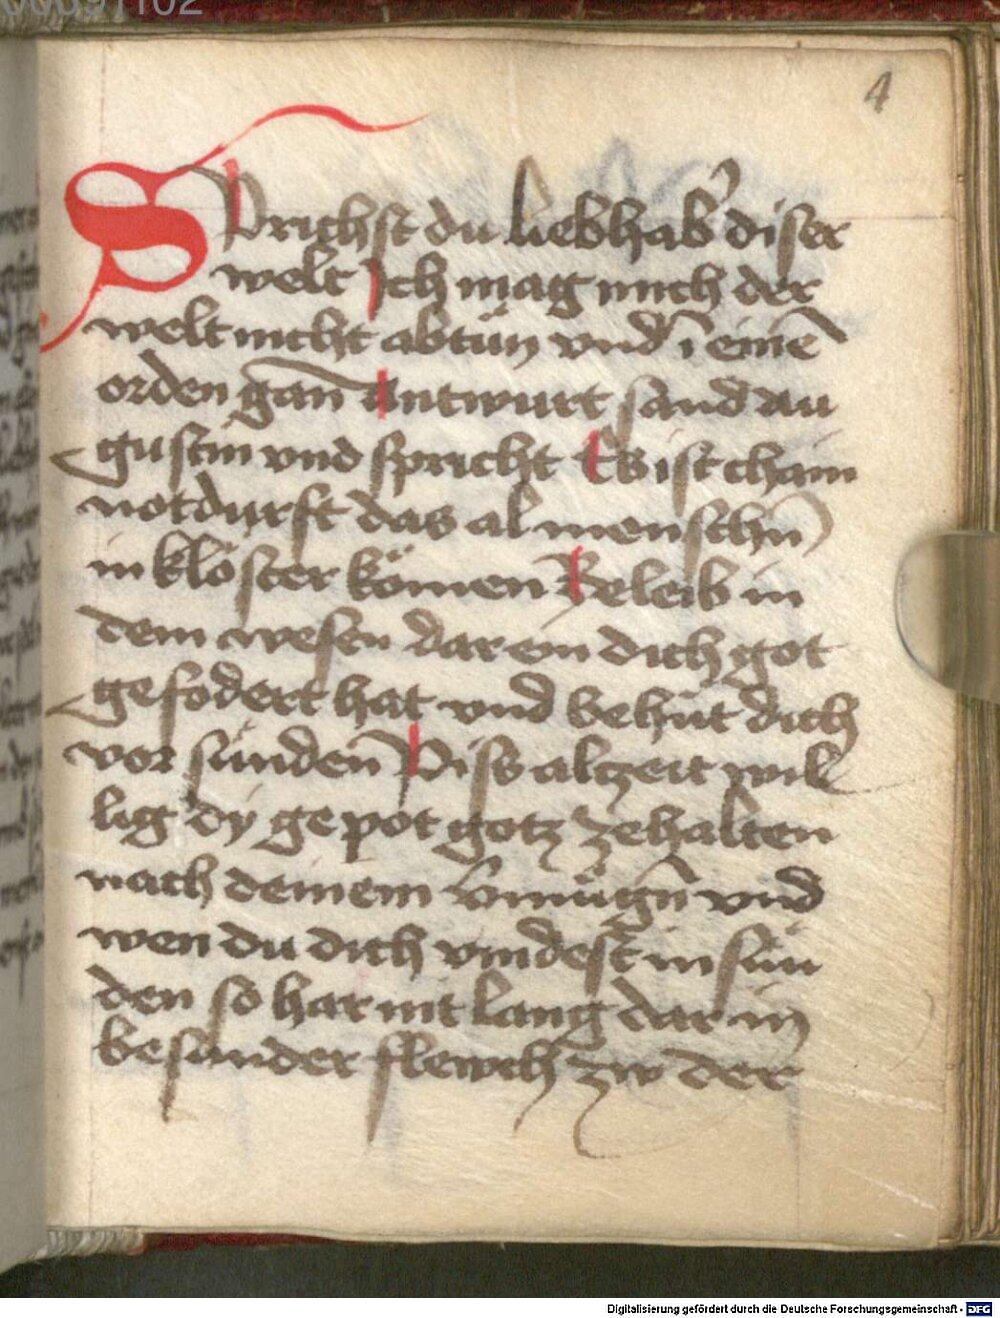 4
SPrichst du liebhab̕ diser
welt Ich mag mich der
welt nicht abtůn vnd ī einē
orden gan̄ Antwurt sand au
gustin vnd spricht Es ist chain
notdurft das al menschn̄
in klöster kömen Beleib in
dem wesen dar ein dich got
gefodert hat vnd behüt dich
vor sünden Piss alczeit wil
lig dy gepot gotz ze halten
nach deinem vmügn̄ vnd
wen du dich vindest in sün
den so har nit lang dar in
besunder flewch zw der
Digitalisierung gefördert durch die Deutsche Forschungsgemeinschaft - DFG